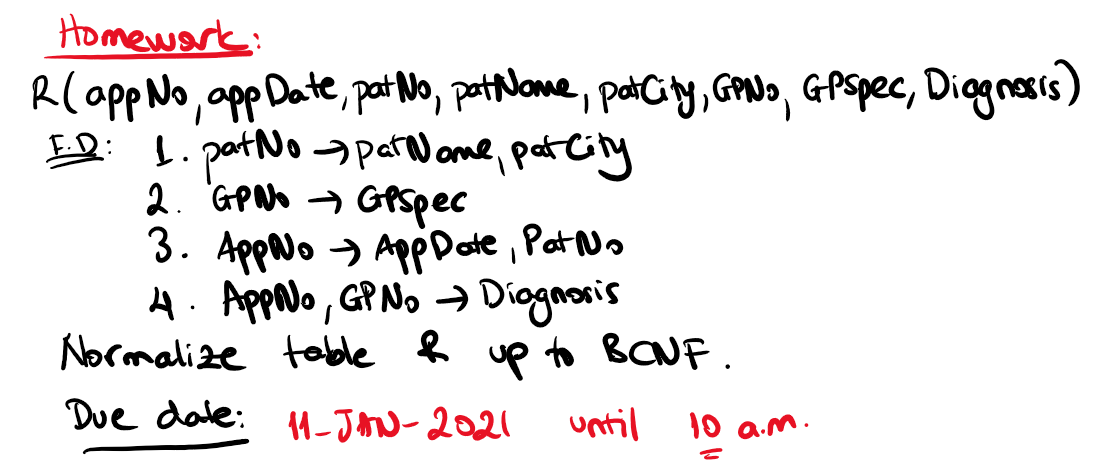 Homework:
R(appNo, appDate, patNo, patName, patCity, GPNo, GPSpec, Diagnosis)
F.D: 1. patNo → patName, patCity
2. GPNo → GPSpec
3. AppNo → AppDate, PatNo
4. AppNo, GPNo → Diagnosis
Normalize table R up to BCNF.
Due date: 11-JAN-2021 until 10 a.m.